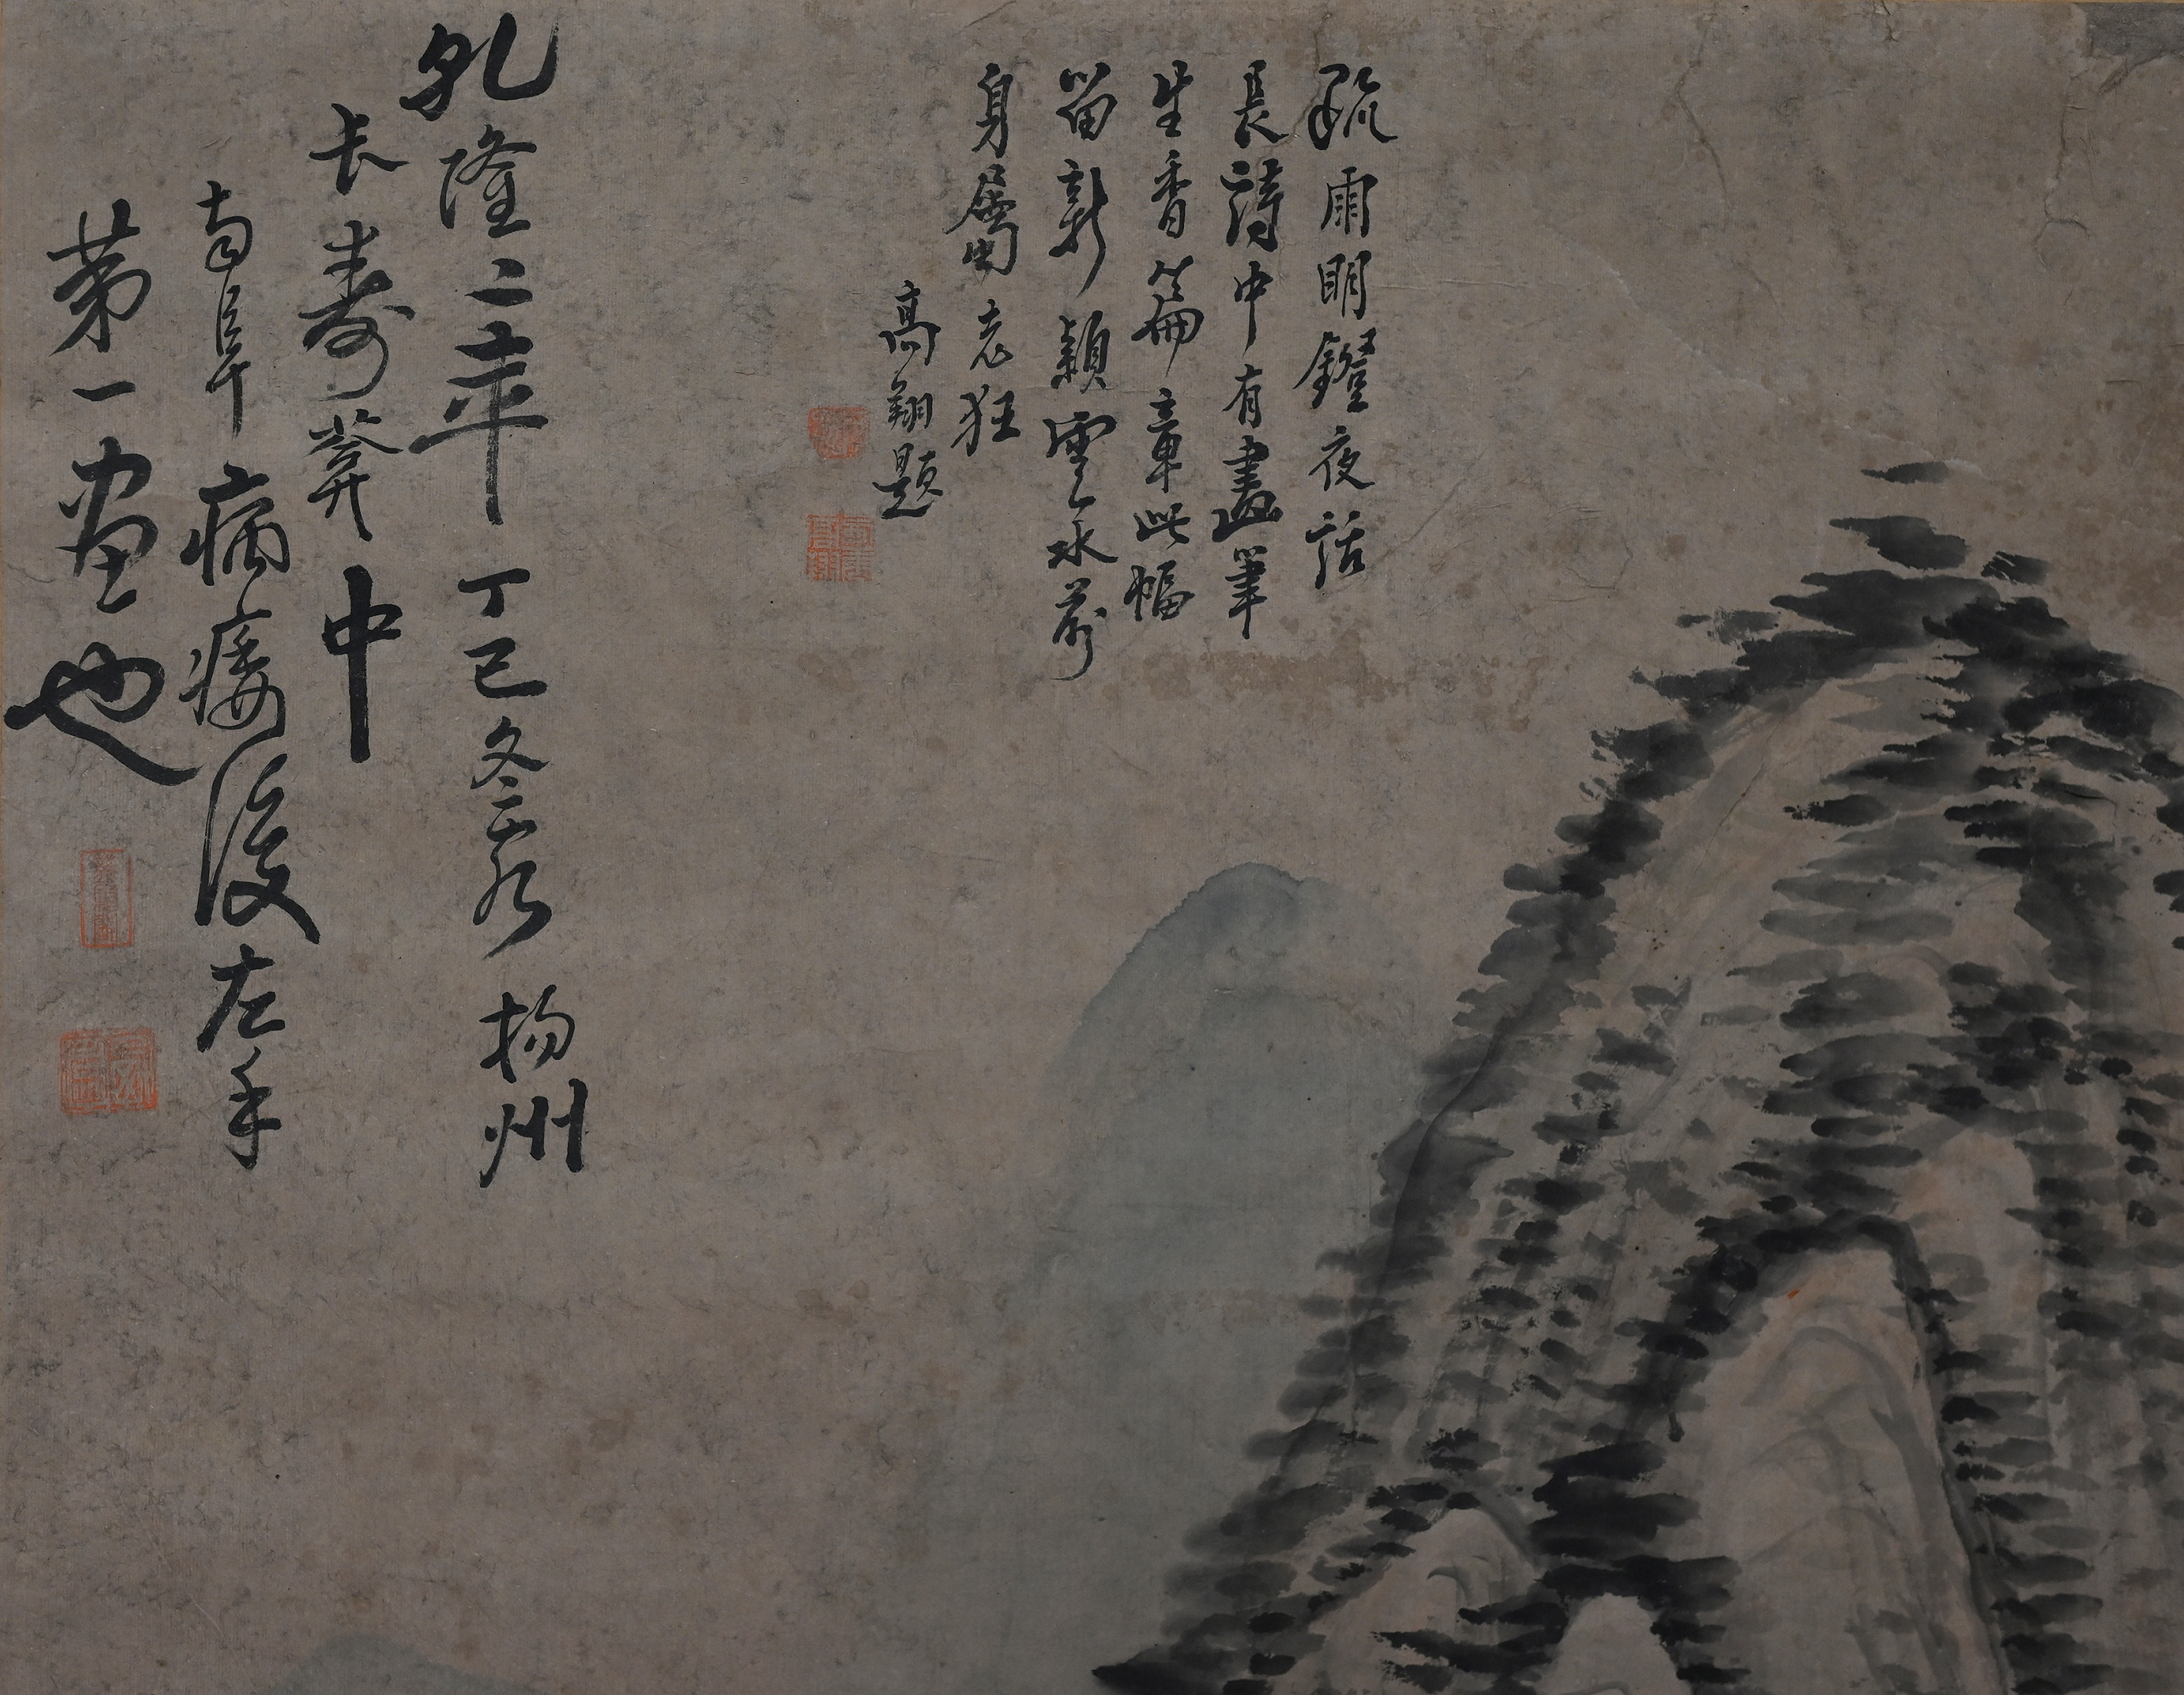 疏雨明鐙夜話
長詩中有畫筆
生香篇章此幅
留新穎雲水前
身屬老狂
高翔題
乾隆二年丁巳冬 揚州
長壽葊中
南阜病痿後左手
第一画也